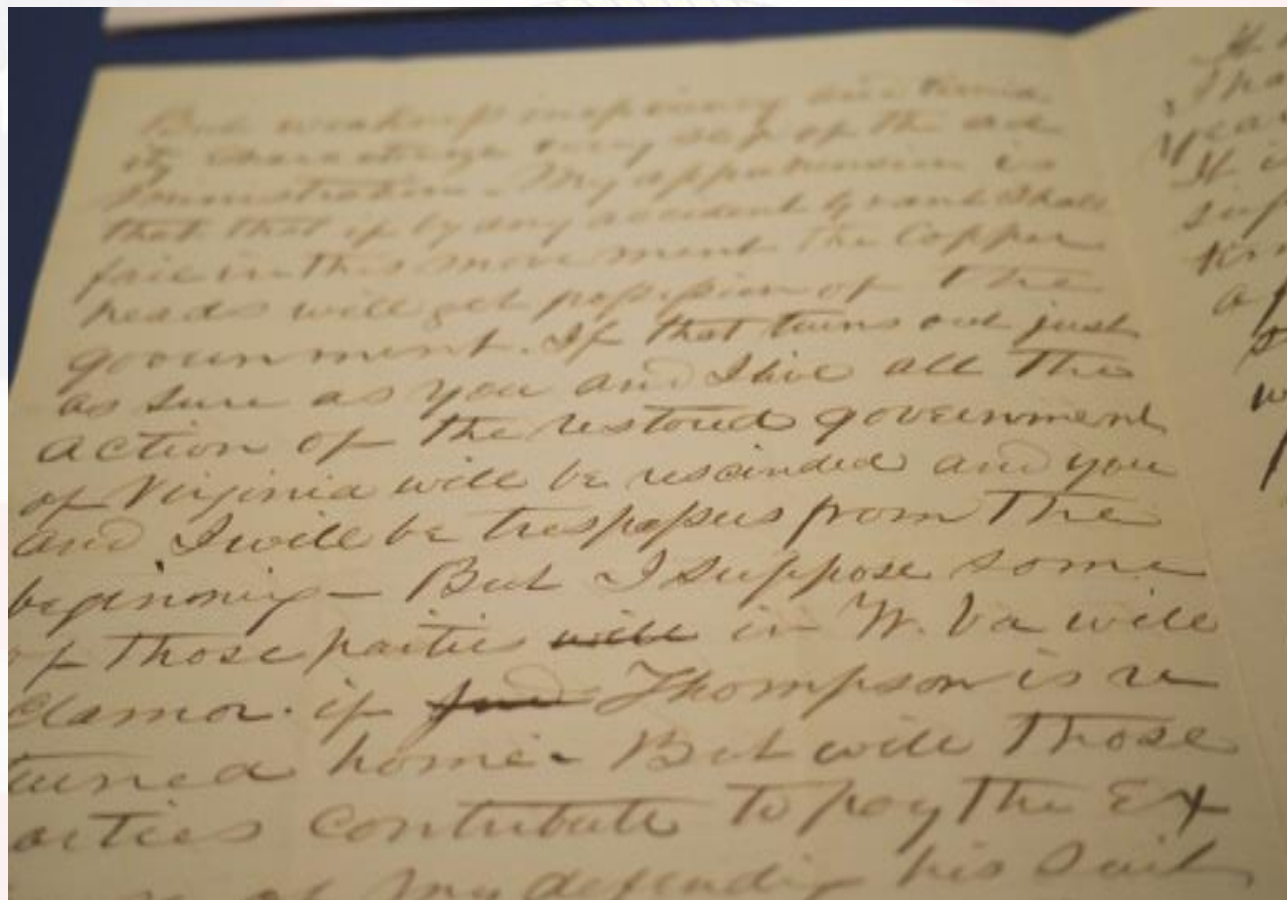 But weakness inefficiency and timid
ity characterize every step of the ad
ministration. My apprehension is
that that if by any accident Grant shall
fail in this movement the Copper
heads will get possession of the
government. If that turns out just
as sure as you and I live all the
action of the restored government
of Virginia will be rescinded and you
and I will be trespassers from the
beginning – But I suppose some
of those parties will in W. Va will
clamor. if Jud Thompson is re
turned home. But will those
parties contribute to pay the Ex
of my defending his suit